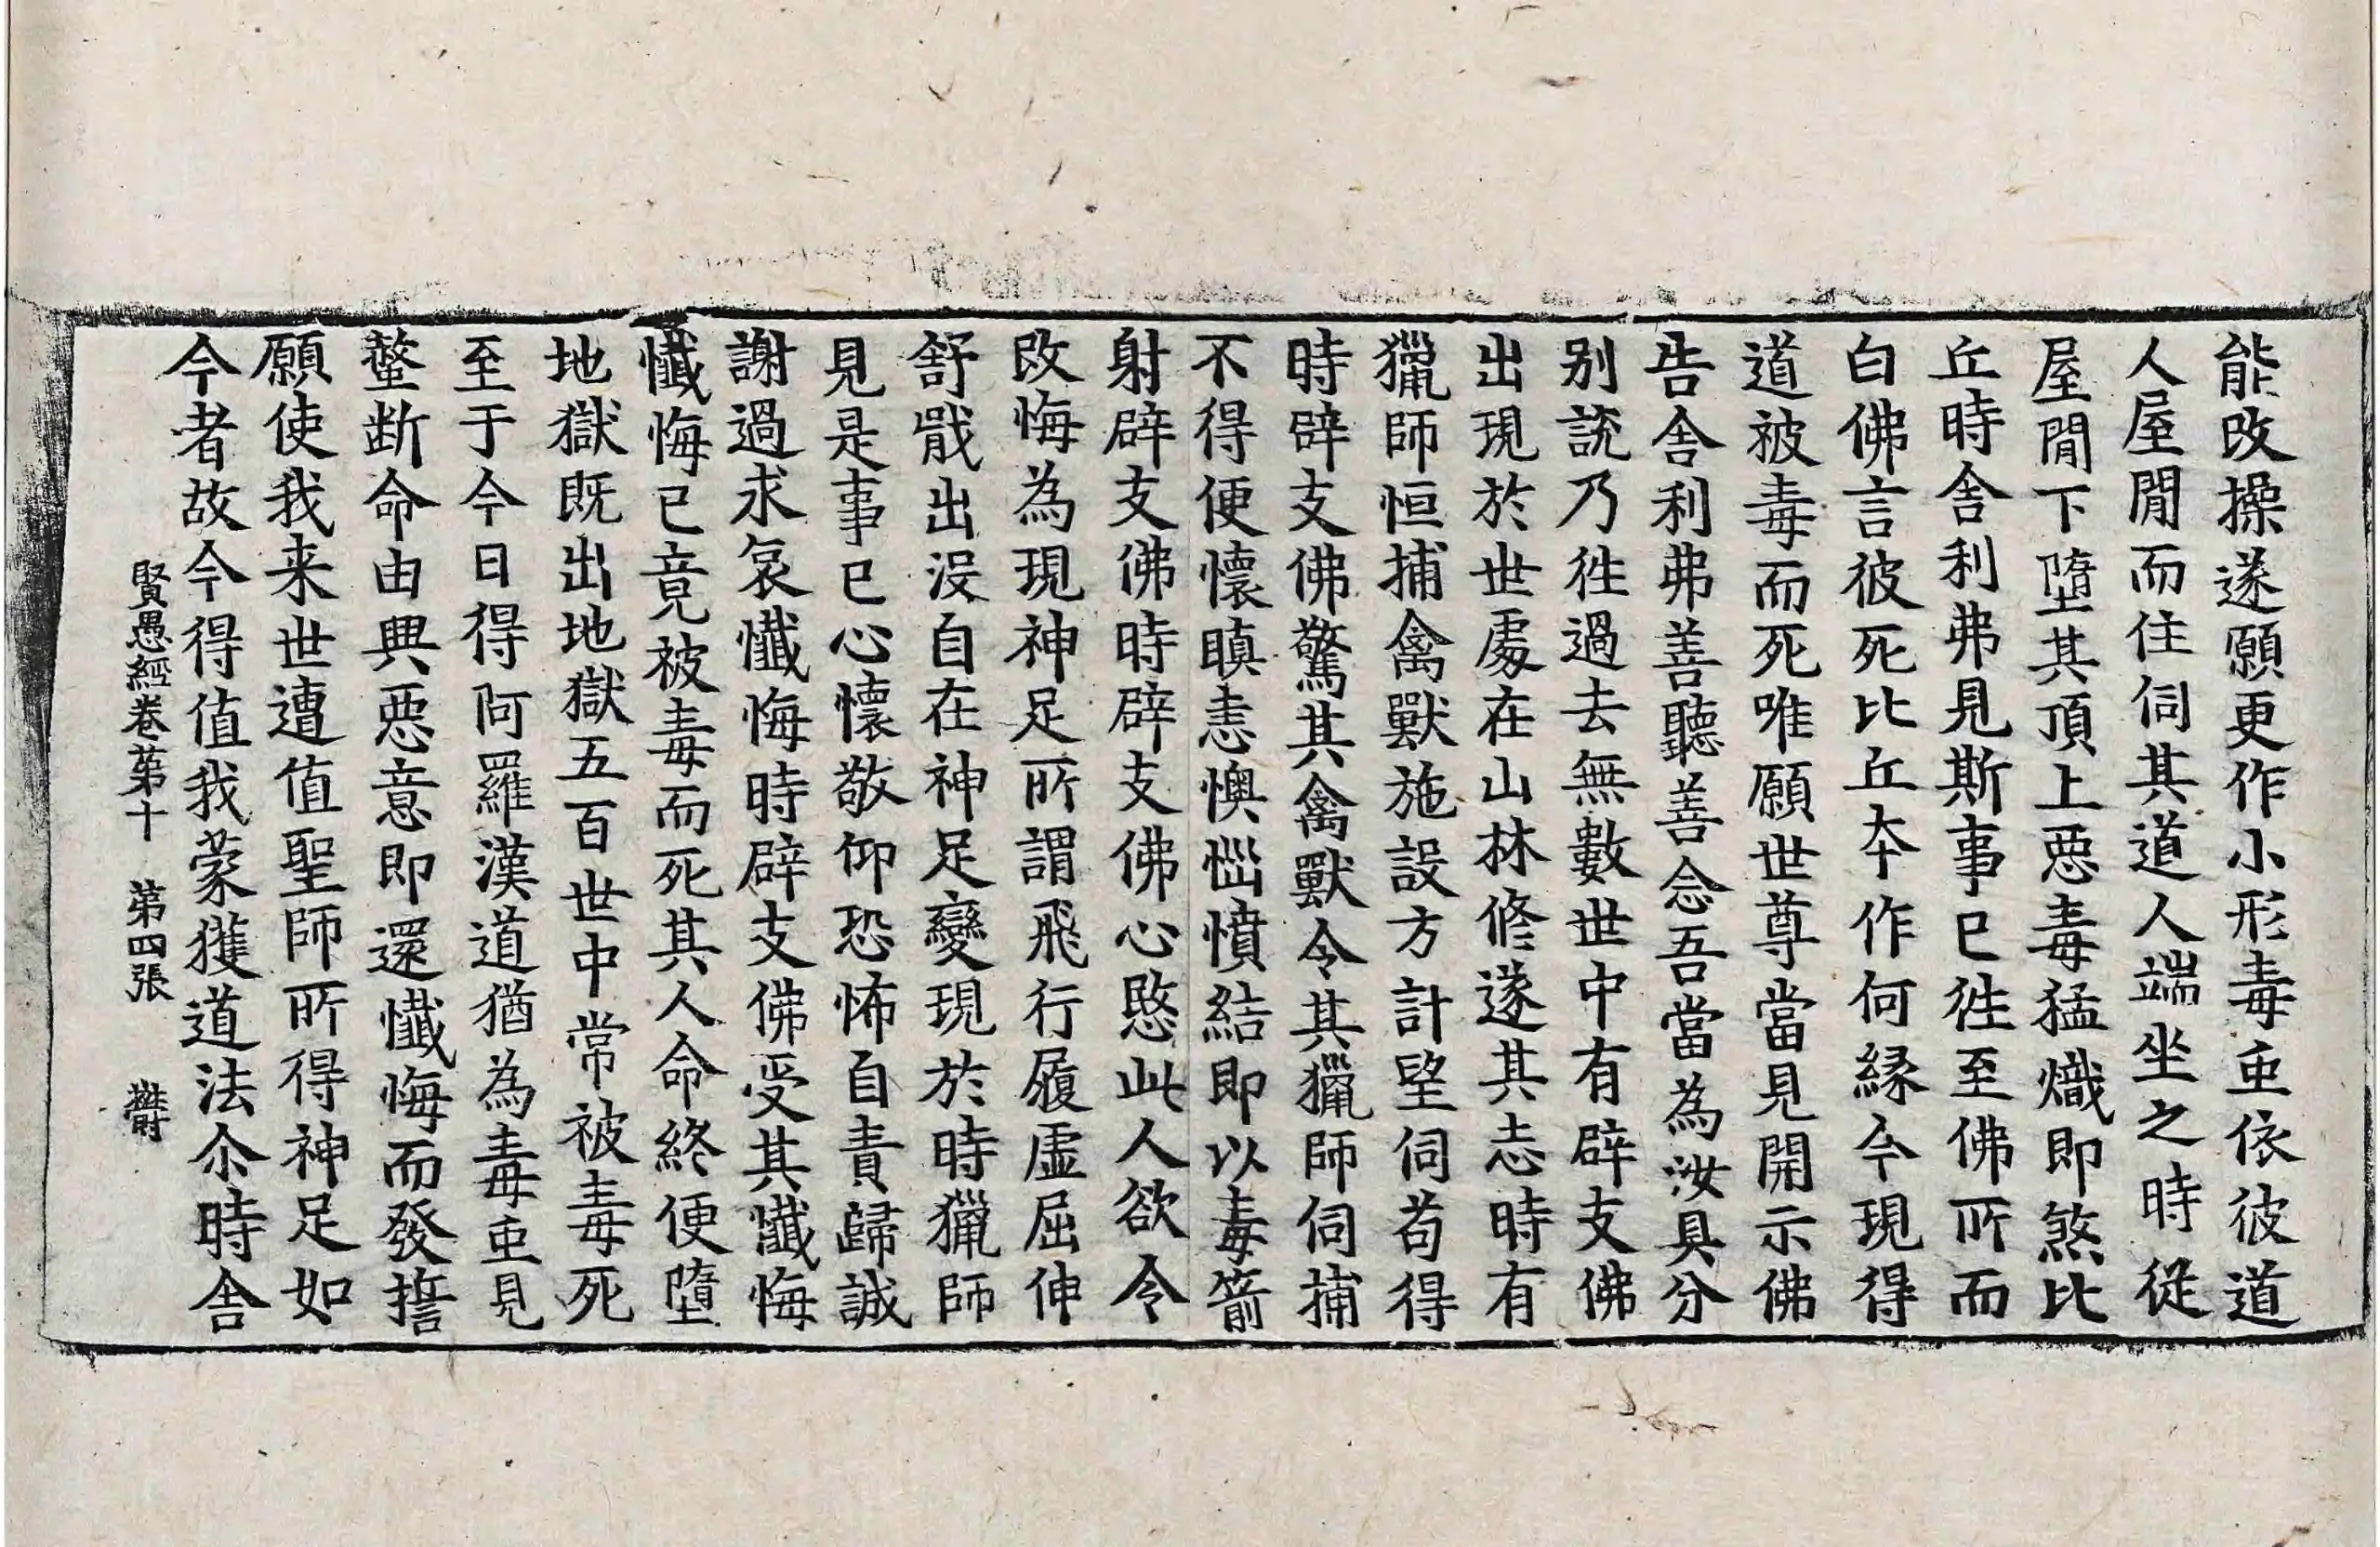 能改操遂願更作小形毒虫依彼道
人屋間而住伺其道人端坐之時從
屋間下墮其頂上惡毒猛熾即煞比
丘時舍利弗見斯事已往至佛所而
白佛言彼死比丘本作何緣今現得
道被毒而死唯願世尊當見開示佛
告舍利弗善聽善念吾當為汝具分
別說乃往過去無數世中有辟支佛
出現於世處在山林修遂其志時有
獵師恒捕禽獸施設方計望伺苟得
時辟支佛驚其禽獸令其獵師伺捕
不得便懷瞋恚懊惱憤結即以毒箭
射辟支佛時辟支佛心愍此人欲令
改悔為現神足所謂飛行履虛屈伸
舒戢出没自在神足變現於時獵師
見是事已心懷敬仰恐怖自責歸誠
謝過求哀懺悔時辟支佛受其懺悔
懺悔已竟被毒而死其人命終便墮
地獄既出地獄五百世中常被毒死
至于今日得阿羅漢道猶為毒虫見
螫断命由興惡意即還懺悔而發誓
願使我来世遭值聖師所得神足如
今者故今得值我蒙獲道法尒時舍
賢愚經卷苐十 第四張 欝